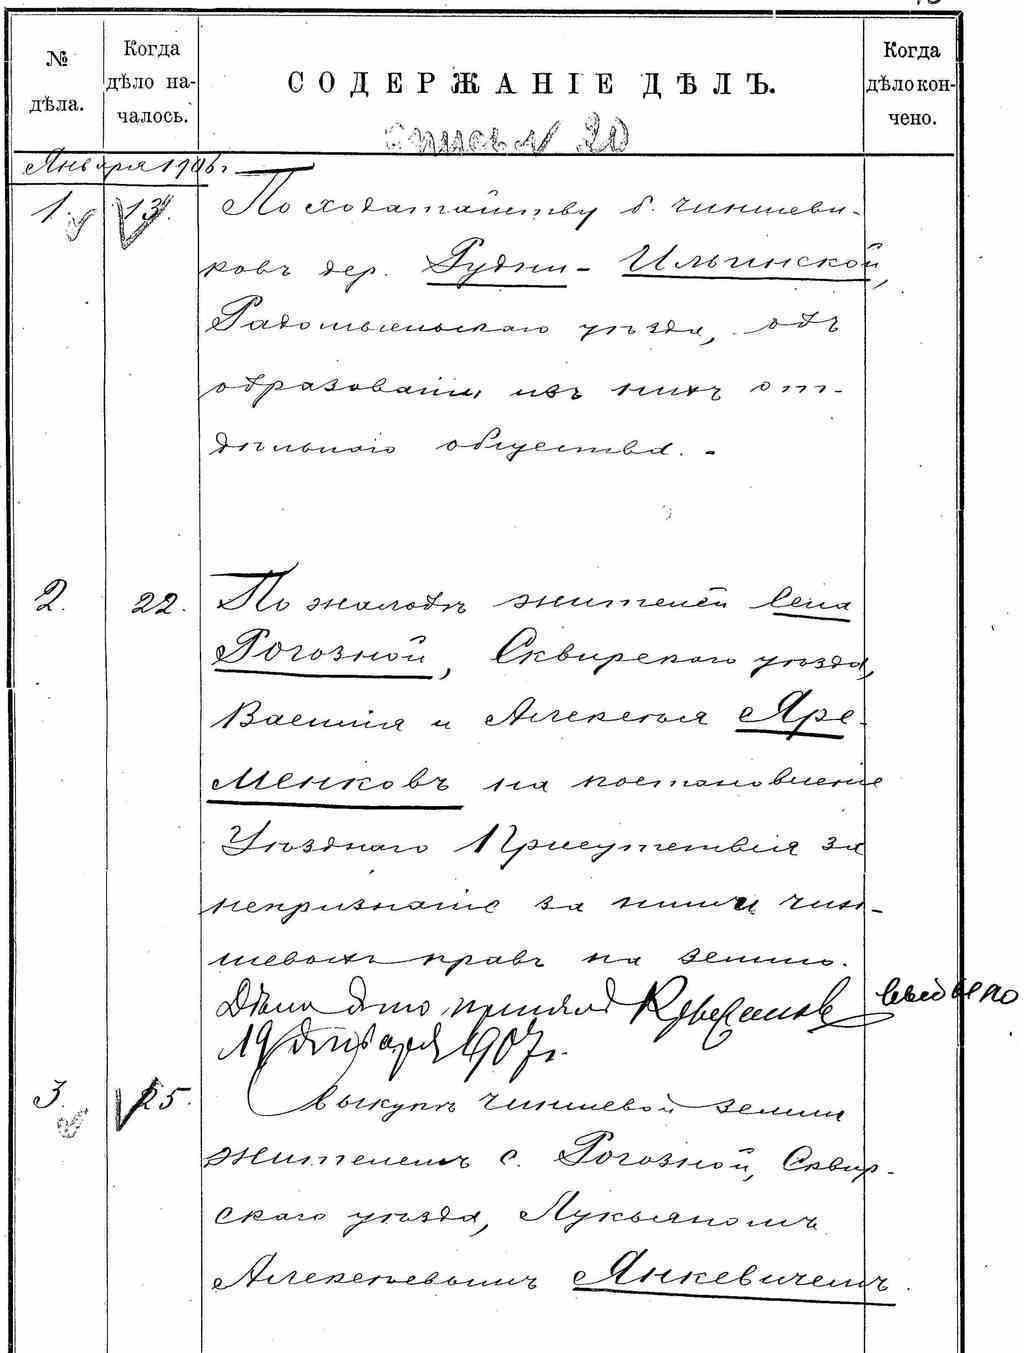 № дѣла.
Когда дѣло на-чалось.
СОДЕРЖАНІЕ ДѢЛЪ.
Когда дѣло кон-чено.
Опись № 20
Января 1906 г.
1. 13. По ходатайству б. чиншеви-
ковъ дер. Рудни-Ильинской,
Радомысльскаго уѣзда, объ
образованіи изъ нихъ от-
дѣльнаго общества.-
2. 22. По жалобѣ жителей села
Рогозной, Сквирскаго уѣзда,
Василія и Алексѣя Яре-
менковъ на постановленіе
Уѣзднаго Присутствія за
непризнаніе за ними чин-
шевыхъ правъ на землю.
Дѣло это принялъ
19 1907 г.
3. 25. Выкупъ чиншевой земли
жителемъ с. Рогозной, Сквир-
скаго уѣзда, Лукьяномъ
Алексѣевымъ Янкевичемъ.